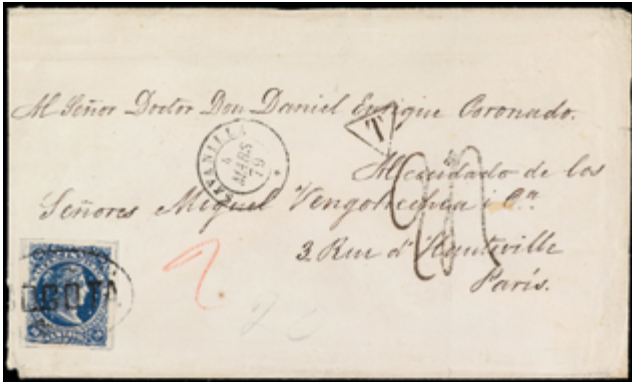 Al Señor Doctor Don Daniel Enrique Coronado.
T
SAVANILLA
4
MARS
79
Al cuidado de los
Señores Miguel Vengoechea i Cª
3 Rue d'Hauteville
París.
BOGOTA
2